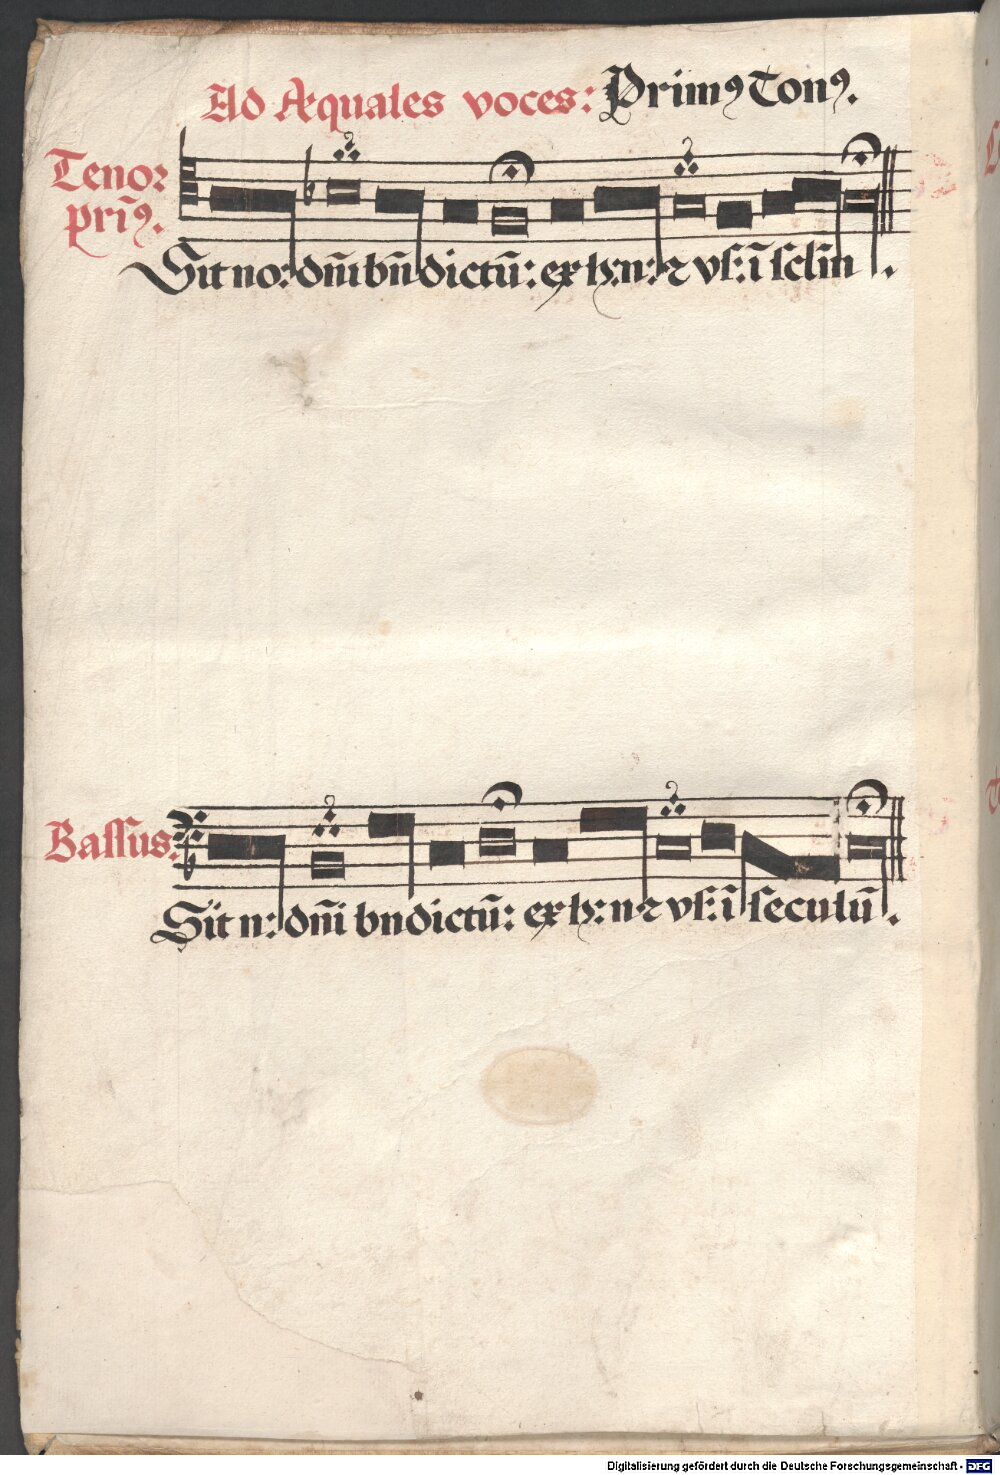 Ad Æquales voces: Primꝰ Tonꝰ.
Tenor
prīꝰ.
Sit no: dm̄i bn̄dictū: ex h: n: ⁊ vſ: ī ſcl̄m.
Baſſus.
Sit n: dn̄i bndictū: ex h: n ⁊ vſ: ī ſeculū.
Digitalisierung gefördert durch die Deutsche Forschungsgemeinschaft - DFG